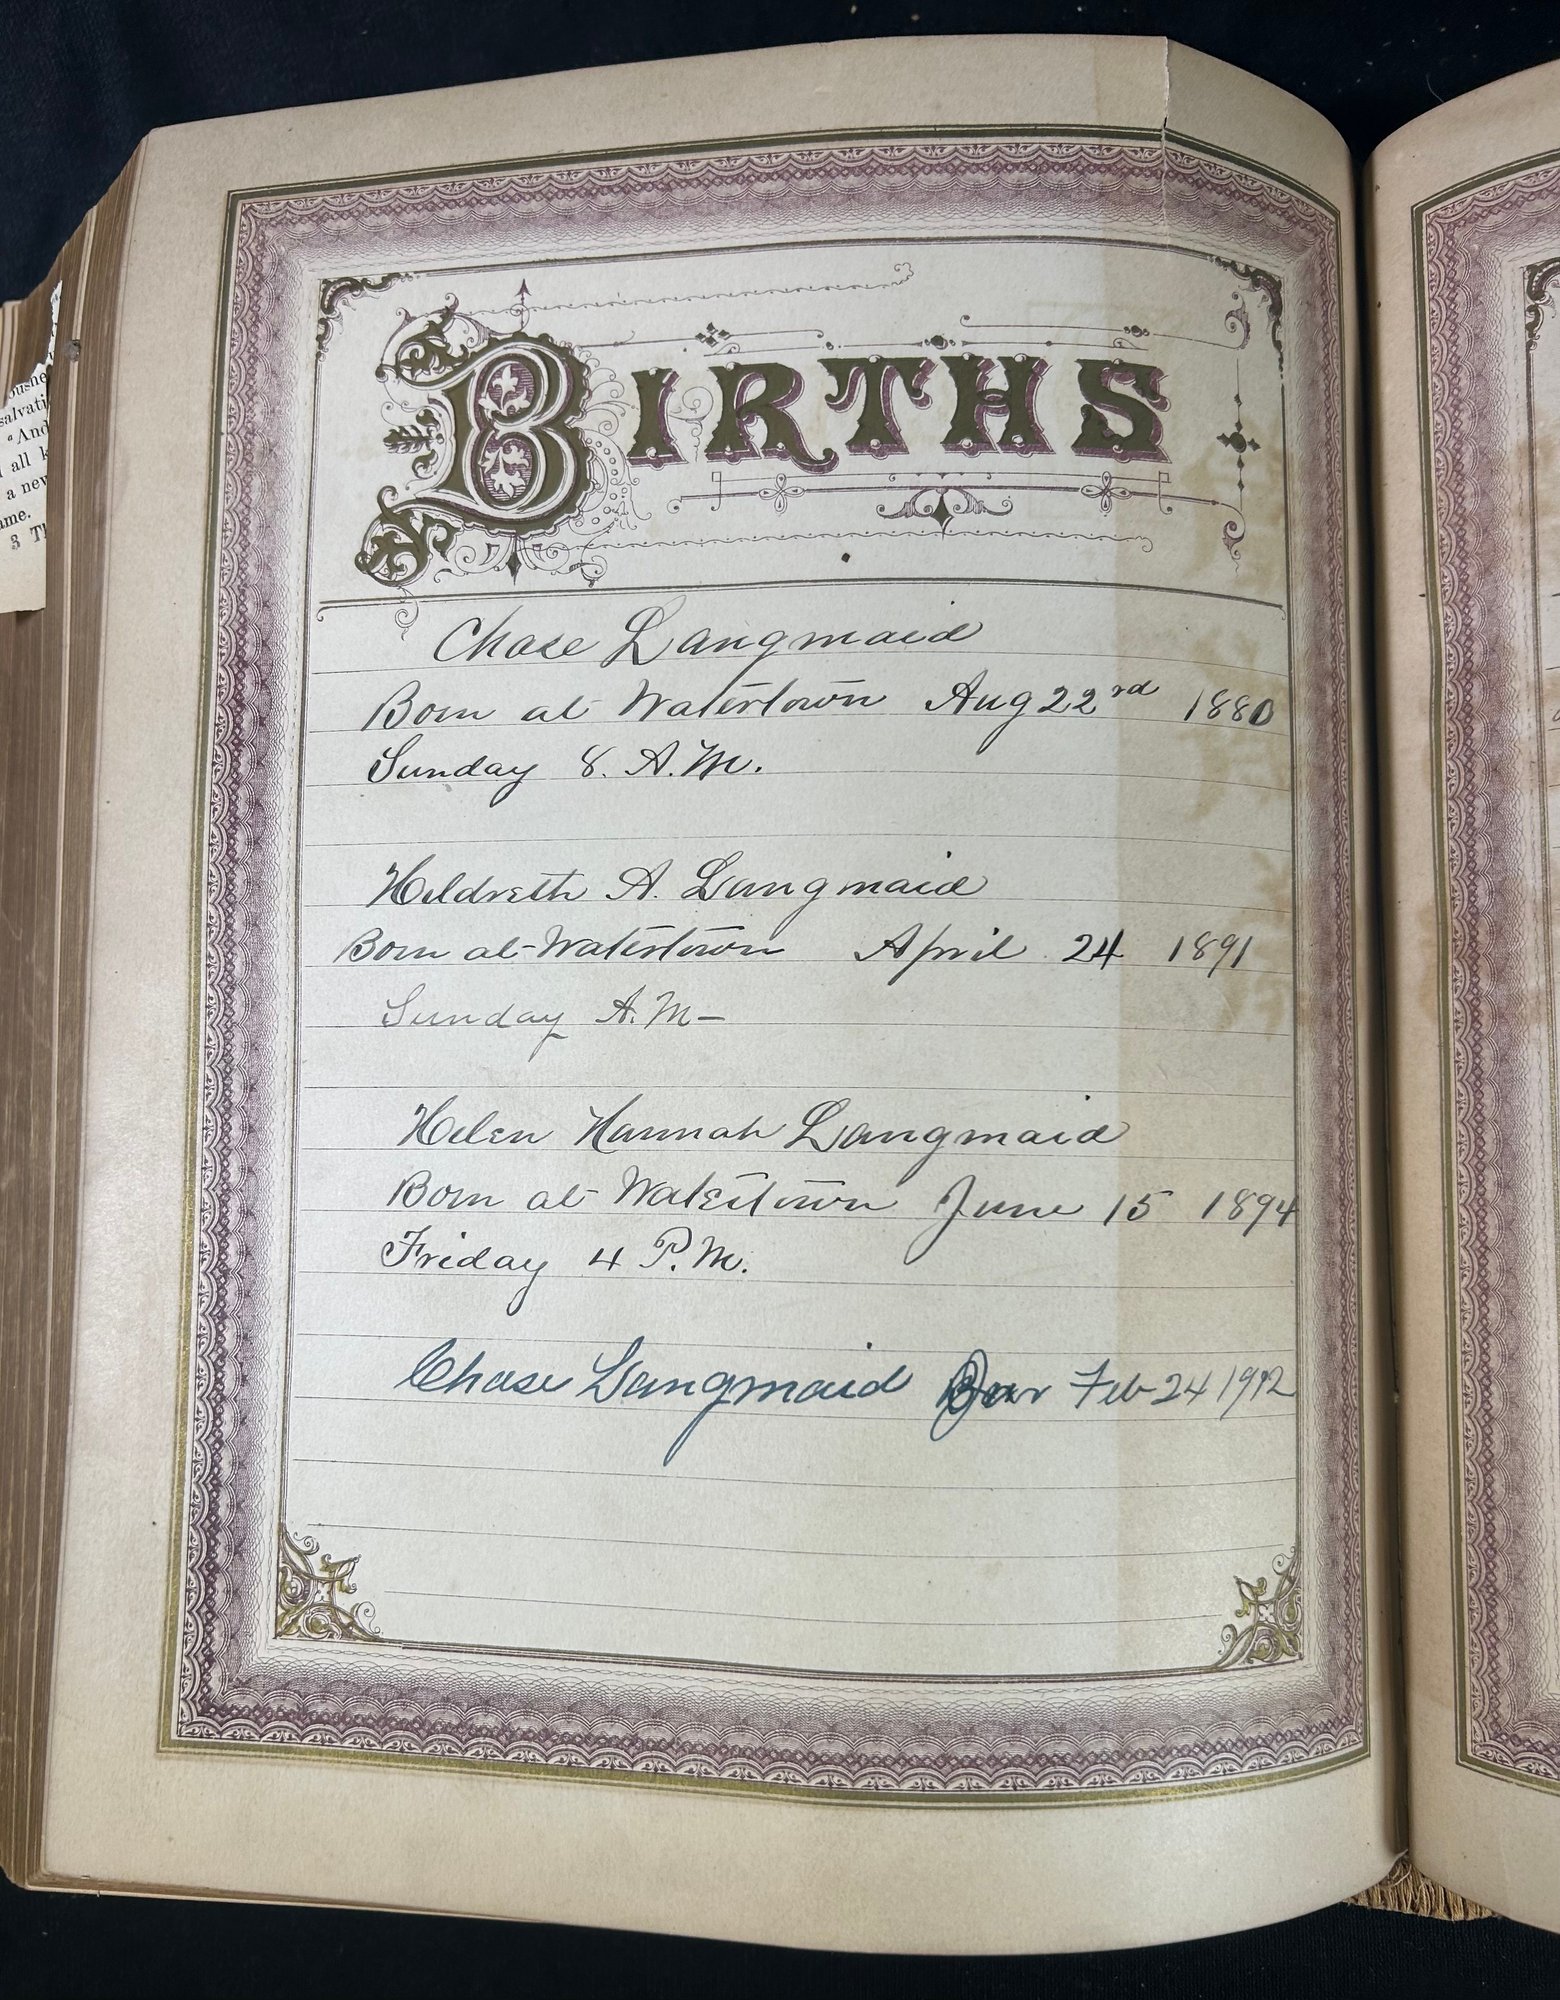 ousne
salvati
"And
all k
a new
ame.
3 Th
BIRTHS
Chase Langmaid
Born at Watertown Aug 22rd 1880
Sunday 8. A.M.
Hildreth A. Langmaid
Born at Watertown April 24 1891
Sunday A.M-
Helen Hannah Langmaid
Born at Watertown June 15 1894
Friday 4 P.M.
Chase Langmaid Feb 24 1912